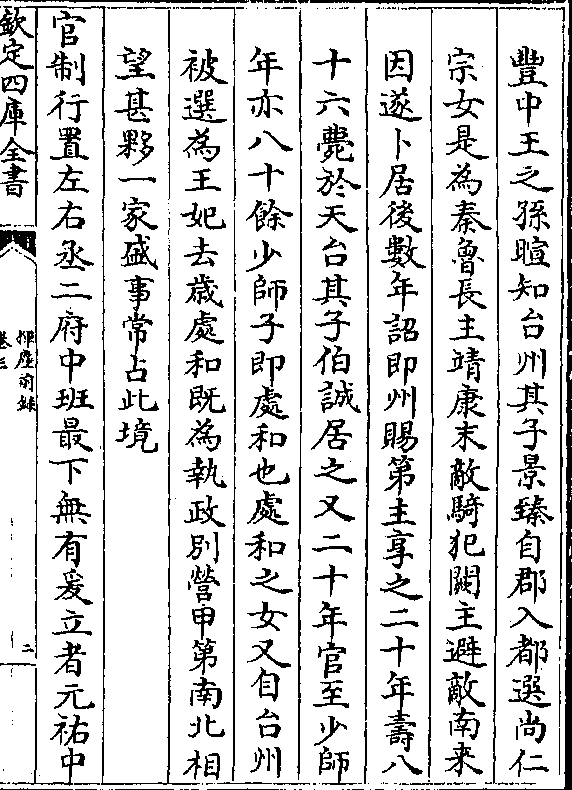 豐中王之孫暄知台州其子景臻自郡入都選尚仁
宗女是為秦魯長主靖康末敵騎犯闕主避敵南来
因遂卜居後數年詔即州賜第主享之二十年壽八
十六薨於天台其子伯誠居之又二十年官至少師
年亦八十餘少師子即處和也處和之女又自台州
被選為王妃去歲處和既為執政別營甲第南北相
望甚夥一家盛事常占此境
官制行置左右丞二府中班最下無有爰立者元祐中
欽定四庫全書
揮麈前錄
卷三
二